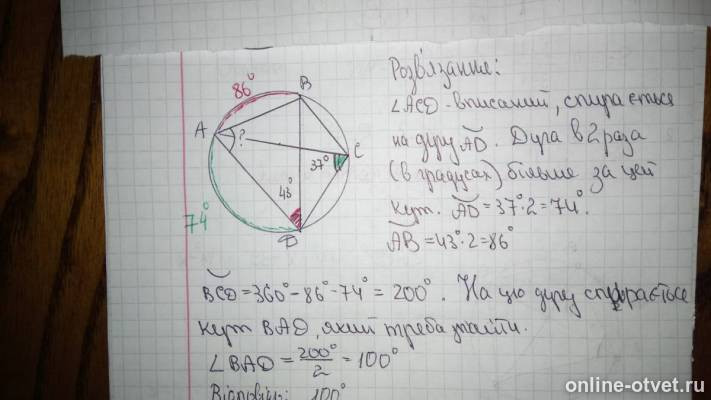 Розв'язання:
∠ACD - вписаний, спирається
на дугу AD. Дуга в 2 раза
(в градусах) більше за цей
кут. AD = 37°·2 = 74°.
AB = 43°·2 = 86°
86°
B
A
?
37°
C
43°
74°
D
BCD = 360° - 86° - 74° = 200°. На цю дугу спирається
кут BAD, який треба знайти.
∠BAD = 200°/2 = 100°
Відповідь: 100°
online-otvet.ru